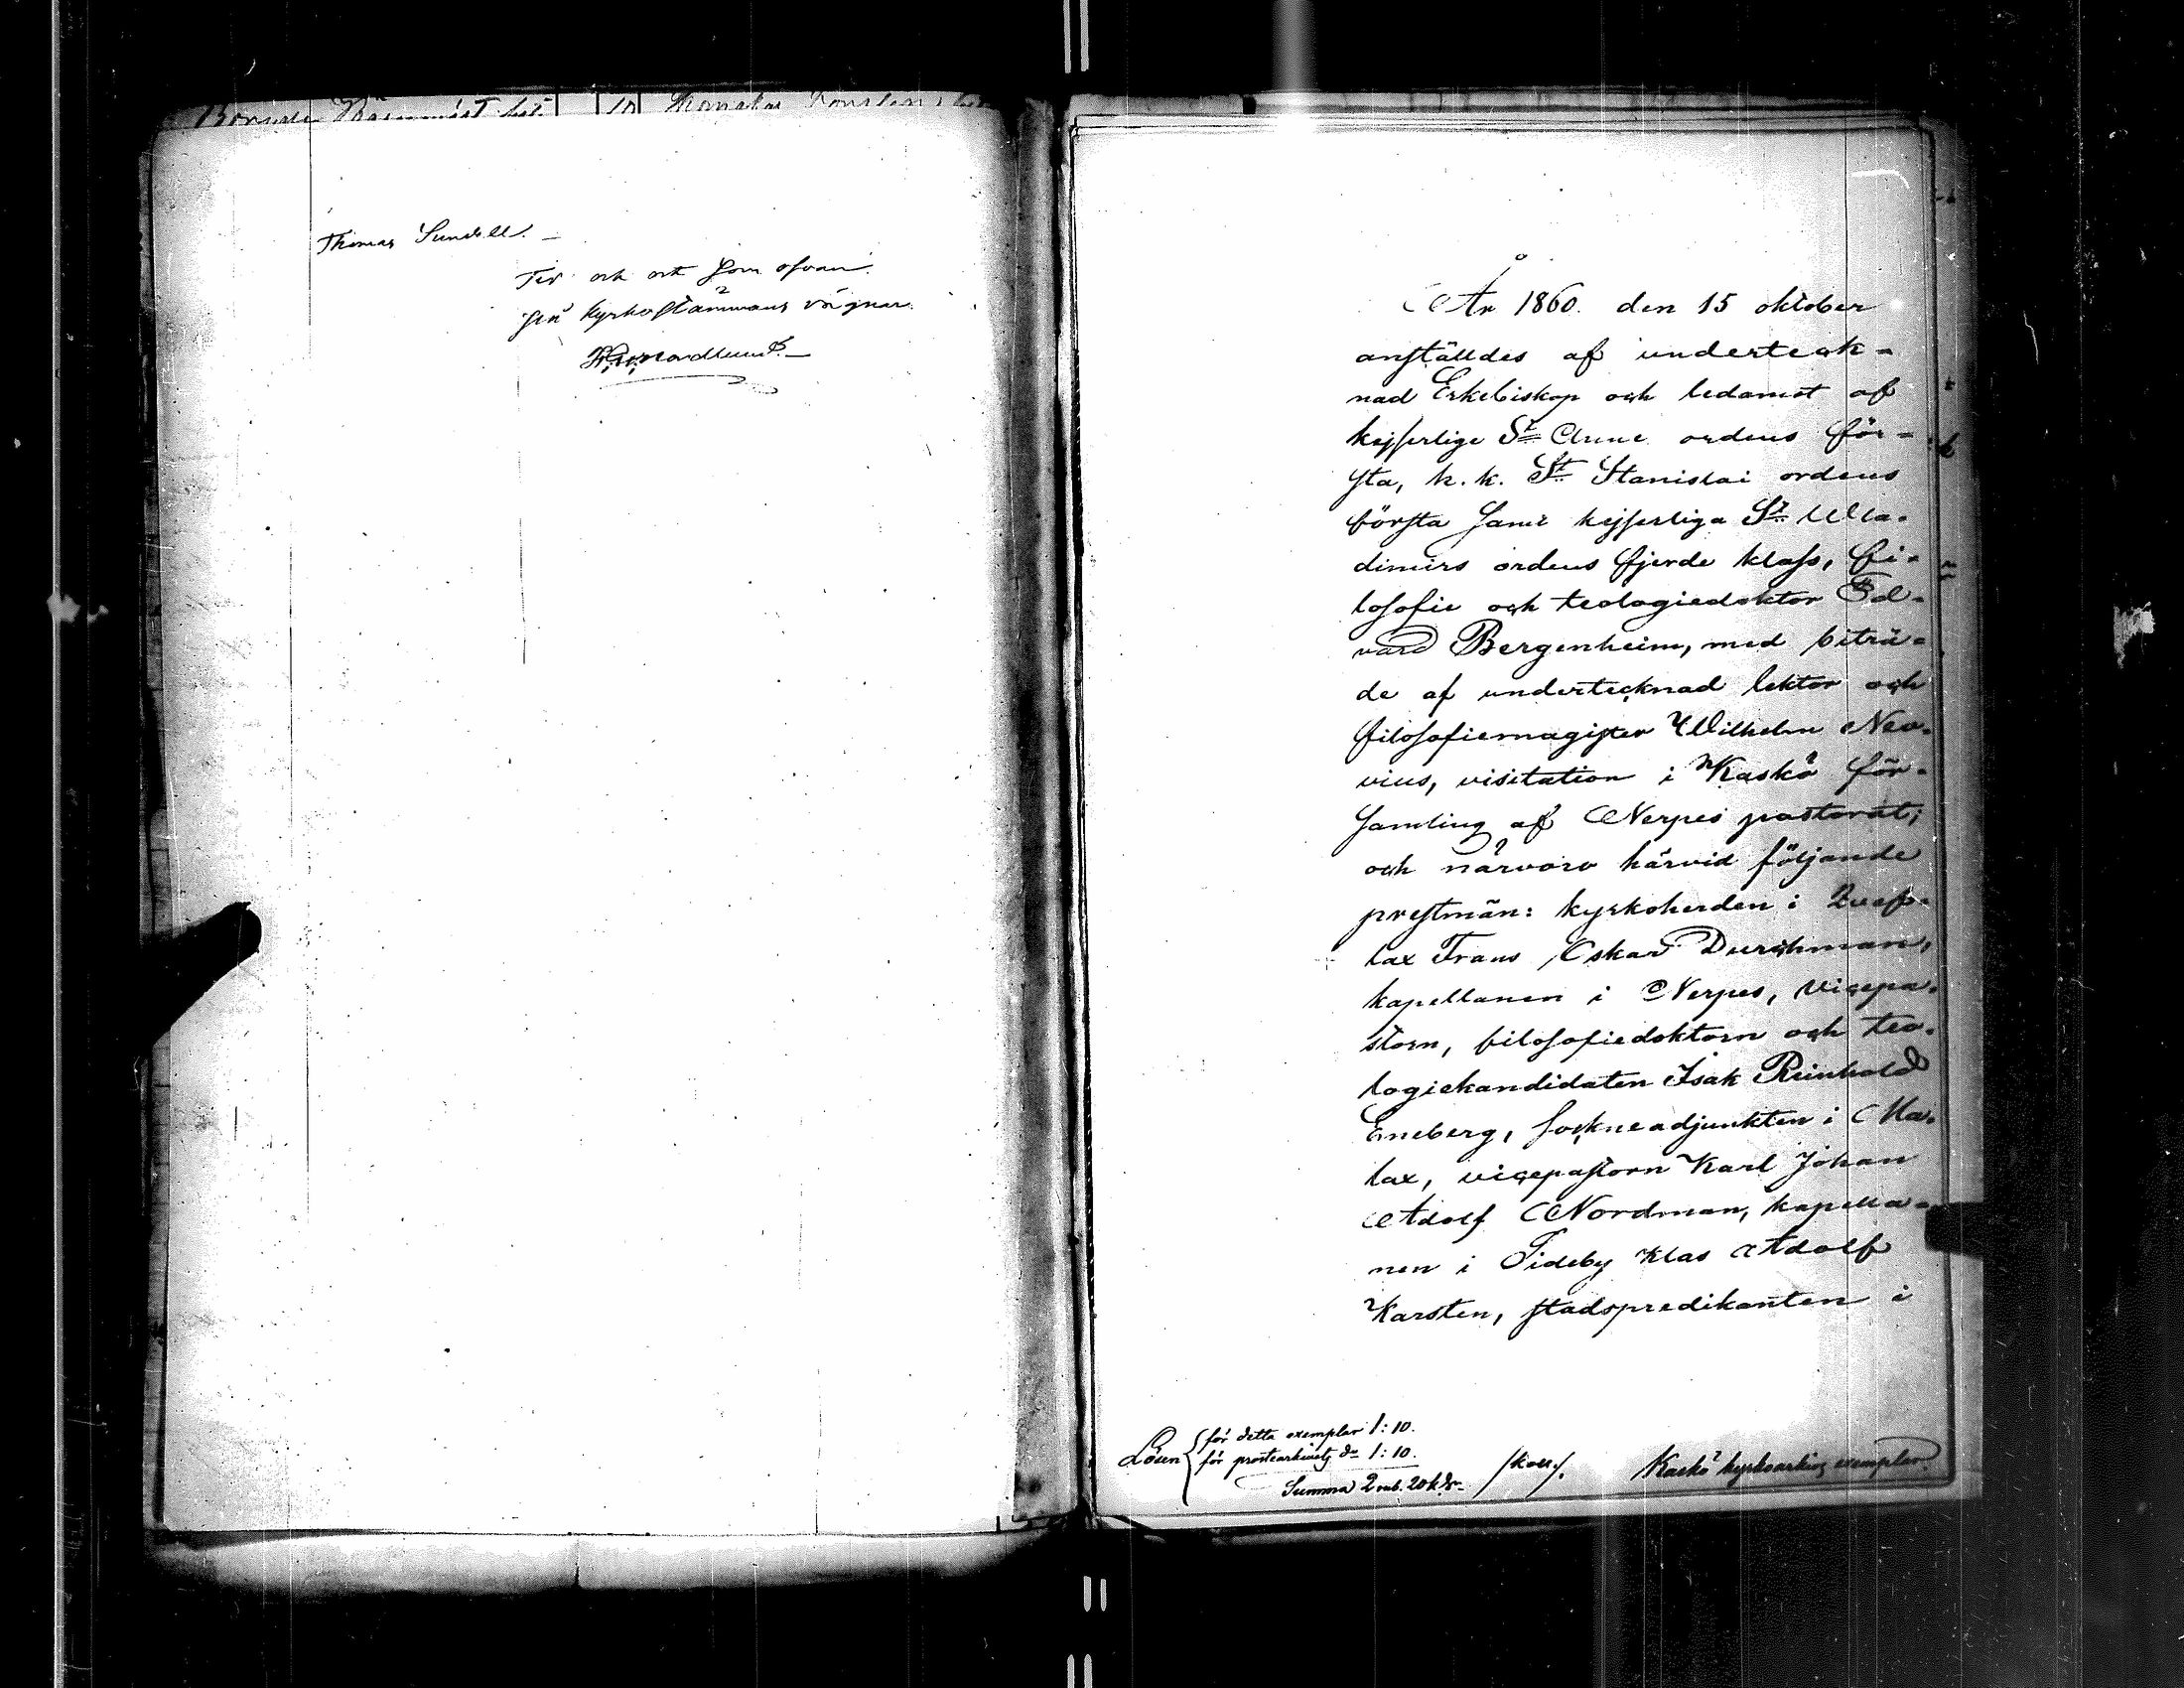 Thomas Sundell. –
Tid och ort som ofvan.
På kyrkostämmans vägnar.
År 1860. den 15 oktober
anställdes af underteck-
nad Erkebiskop och ledamot af
kejserliga S:t Annæ ordens för-
sta, k. k. S:t Stanislai ordens
första samt kejserliga S:t Wla-
dimirs ordens fjerde klass, fi-
losofie och teologiedoktor Ed-
vard Bergenheim, med biträ-
de af undertecknad lektor och
filosofiemagister Wilhelm Neo-
vius, visitation i Kaskö för-
samling af Nerpes pastorat;
och närvoro härvid följande
prestmän: kyrkoherden i Qvef-
lax Frans Oskar Durchman,
kapellanen i Nerpes, vicepa-
storn, filosofiedoktorn och teo-
logiekandidaten Isak Reinhold
Eneberg, sockneadjunkten i Ma-
lax, vicepastorn Karl Johan
Adolf Nordman, kapella-
nen i Sideby Klas Adolf
Karsten, stadspredikanten i
Lösen för detta exemplar 1: 10.
för prostearkivets d:o 1: 10.
Summa 2 rub. 20 k.
Kaskö kyrkoarkivs exemplar.